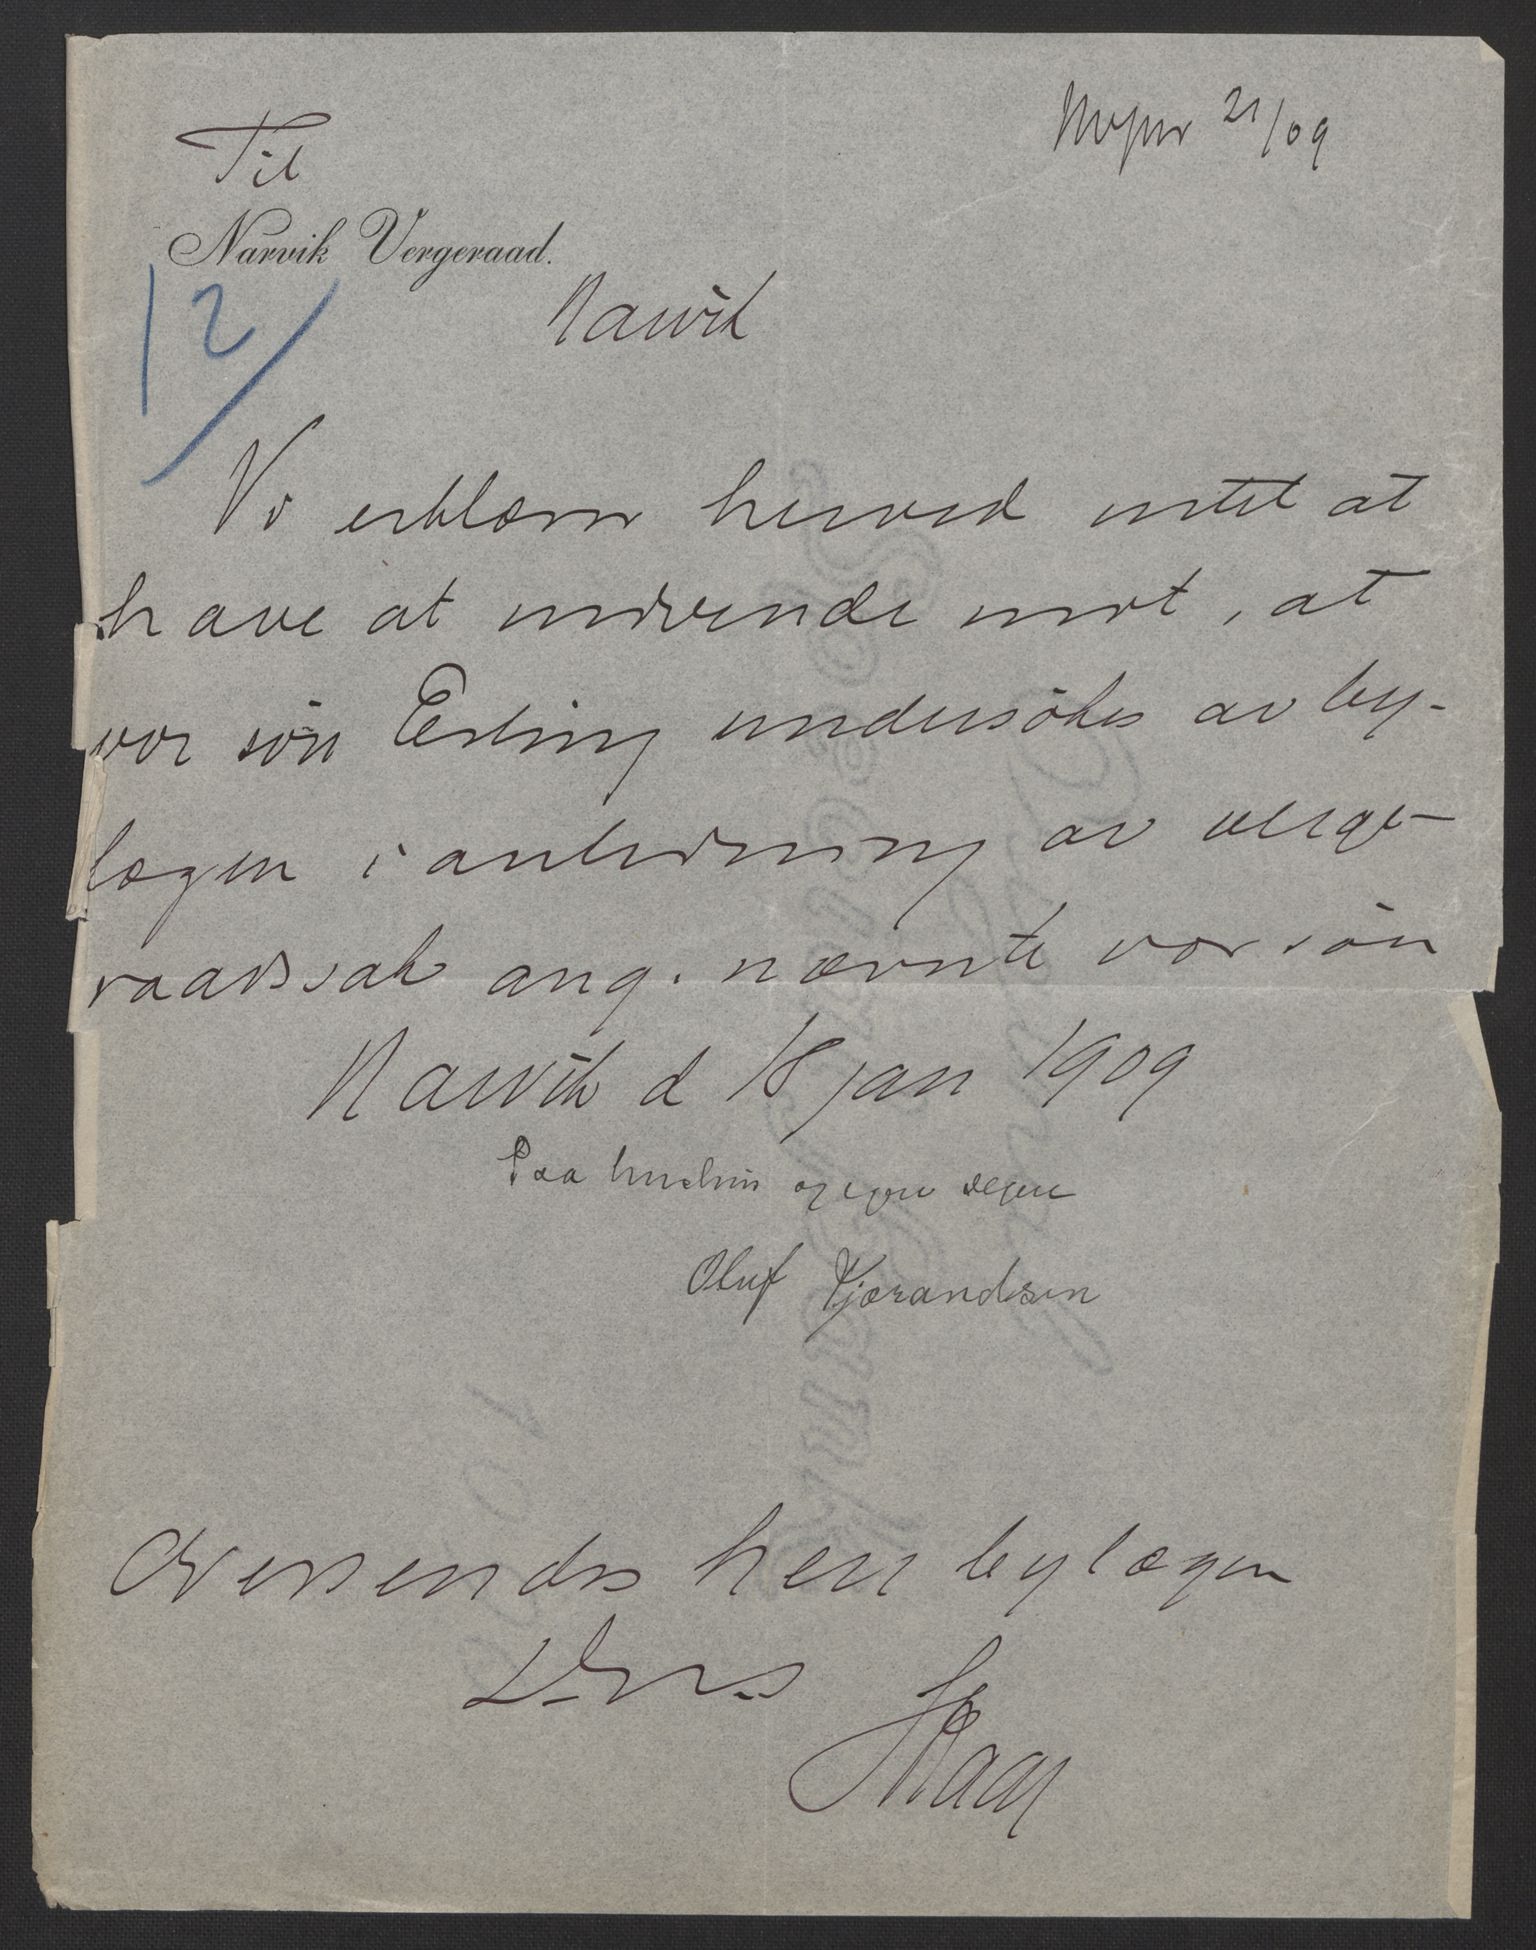 21/09
Til
Narvik Vergeraad.
Narvik
12/
Vi erklærer herved intet at
have at indvende mot, at
vor søn Erling undersøkes av by-
lægen i anledning av verge-
raadssak ang. nævnte vor søn
Narvik d 18 jan 1909
Paa hustrus og egne vegne
Oluf Kjærandsen
Oversendes herr bylægen
D.u.s.